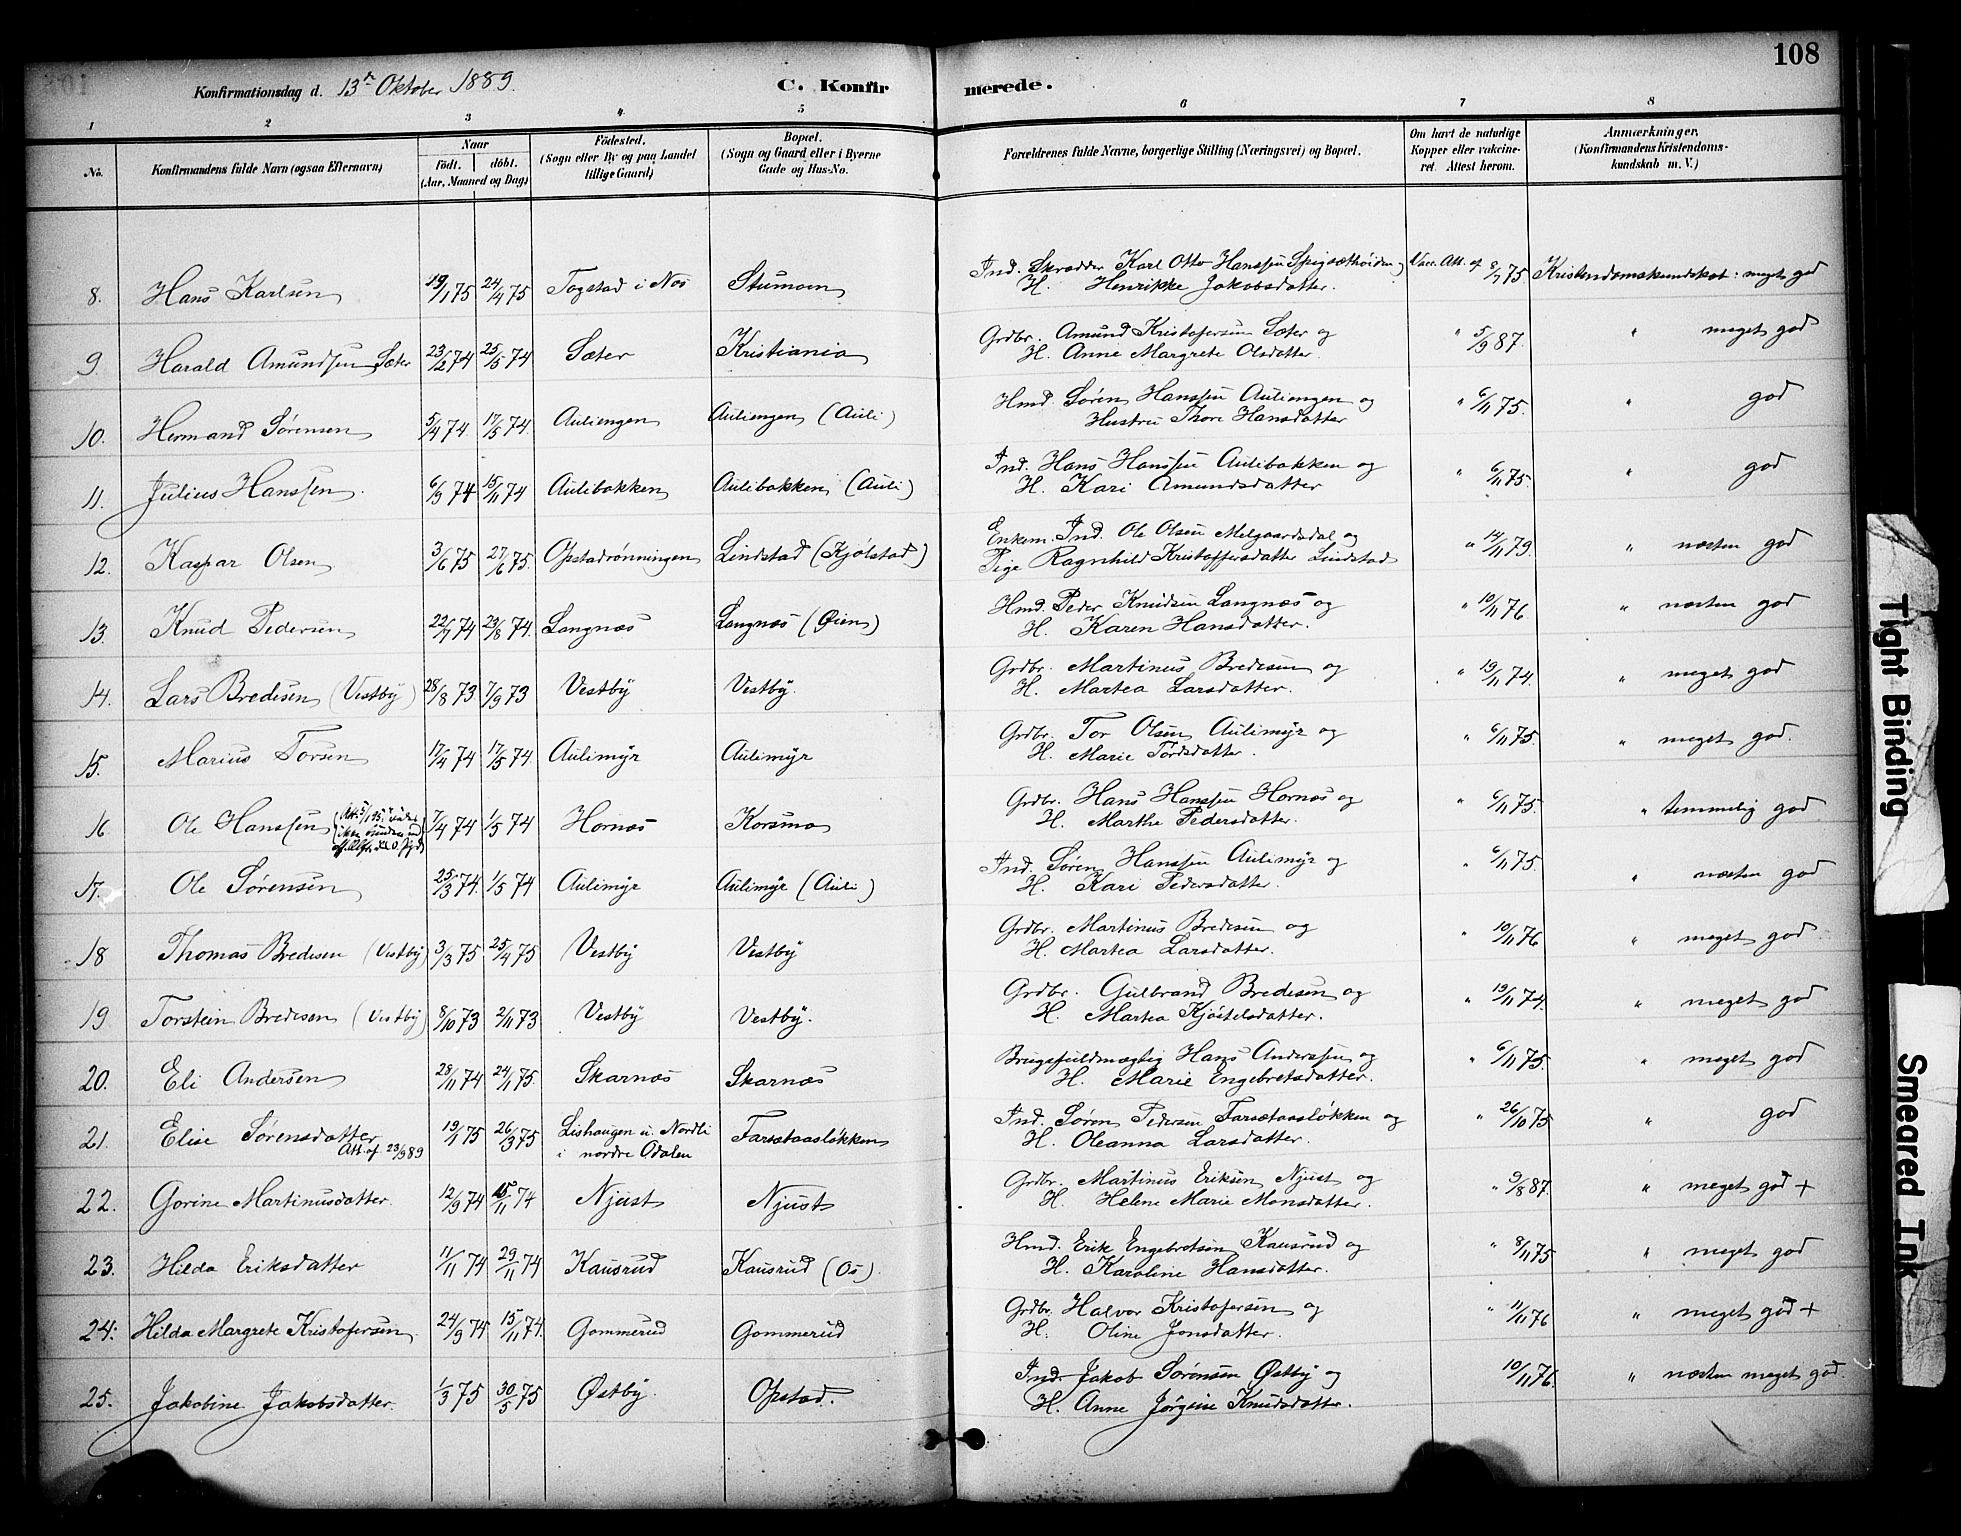 108
Konfirmationsdag d. 13de Oktober 1889. C. Konfirmerede.
1 2 3 4 5 6 7 8
No. Konfirmandens fulde Navn (ogsaa Efternavn) Naar født. døbt. (Aar, Maaned og Dag) Fødested. (Sogn eller By og paa Landet tillige Gaard) Bopæl. (Sogn og Gaard eller i Byerne Gade og Hus-No. Forældrenes fulde Navne, borgerlige Stilling (Næringsvei) og Bopæl. Om havt de naturlige Kopper eller vaccineret. Attest herom. Anmærkninger, (Konfirmandens Kristendomskundskab m. V.)
8. Hans Karlsen 19/1 75 24/4 75 Togstad i Nes Stumoen Ind. Skrædder Karl Otto Hanssen
H. Henrikke Jakobsdatter. Vacc. Att. af 8/7 75 Kristendomskundskab: meget god
9. Harald Amundsen Sæter 23/2 74 25/5 74 Sæter Kristiania Grdbr. Amund Kristofersen Sæter og
H. Anne Margrete Olsdatter. " 5/9 87. " meget god
10. Hermand Sørensen 5/4 74. 17/5 74. Auliengen Auliengen (Auli) Hmd. Søren Hanssen Auliengen og
Hustru Thore Hansdatter " 6/11 75. " god
11. Julius Hanssen. 6/9 74 15/11 74 Aulibakken Aulibakken (Auli) Ind. Hans Hanssen Aulibakken og
H. Kari Amundsdatter " 6/11 75. " god
12. Kaspar Olsen 3/6 75 27/6 75. Opstadrønningen Lindstad (Kjølstad) Enkem. Ind. Ole Olsen Melgaardsdal og
Pige Ragnhild Kristoffersdatter Lindstad " 14/11 79. " næsten god
13. Knud Pedersen 22/7 74 23/8 74. Langnæs Langnæs (Øien) Hmd. Peder Knudsen Langnæs og
H. Karen Hansdatter. " 10/11 76 " næsten god
14. Lars Bredesen (Vestby) 28/8 73 7/9 73 Vestby Vestby. Grdbr. Martinus Bredesen og
H. Martea Larsdatter. " 19/11 74. " meget god
15. Marius Torsen 17/4 74 17/5 74. Aulimyr Aulimyr Grdbr. Tor Olsen Aulimyr og
H. Marie Tordsdatter. " 6/11 75. " meget god.
16 Ole Hanssen 7/4 74 1/5 74 Hornæs Korsmo Grdbr. Hans Hanssen Hornæs og
H. Marthe Pedersdatter. " 6/11 75 " temmelig god
17. Ole Sørensen 25/3 74. 1/5 74 Aulimyr Aulimyr (Auli) Ind. Søren Hanssen Aulimyr og
H. Kari Pedersdatter. " 6/11 75 " næsten god
18 Thomas Bredesen (Vestby) 3/3 75. 25/4 75 Vestby Vestby Grdbr. Martinus Bredesen og
H. Martea Larsdatter. " 10/11 76 " meget god
19 Torstein Bredesen (Vestby) 8/10 73 2/11 73 Vestby Vestby. Grdbr. Gulbrand Bredesen og
H. Martea Kjøstelsdatter. " 19/11 74. " meget god
20. Eli Andersen 28/11 74 24/1 75. Skarnæs Skarnæs Brugsfuldmægtig Hans Anderssen og
H. Marie Engebretsdatter. " 6/11 75. " meget god
21. Elise Sørensdatter 19/1 75 26/3 75 Lishaugen u. Nordli Farsætaasløkken Ind. Søren Pedersen Farsætaasløkken og
Att. af 23/9 89 i nordre Odalen H. Oleanna Larsdatter. " 26/10 75 " god
22. Gorine Martinusdatter. 12/9 74 15/11 74 Njust Njust Grdbr. Martinus Eriksen Njust og
H. Helene Marie Monsdatter. " 9/8 87. " meget god +
23. Hilda Eriksdatter 11/11 74 29/11 74 Kausrud Kausrud (Os). Hmd. Erik Engebretsen Kausrud og
H. Karoline Hansdatter. " 8/11 75 " meget god
24. Hilda Margrete Kristofersen. 24/9 74 15/11 74. Gommerud Gommerud Grdbr. Halvor Kristofersen og
H. Oline Jonsdatter. " 11/11 76 " meget god +
25. Jakobine Jakobsdatter. 1/3 75 30/5 75 Østby. Opstad. Ind. Jakob Sørensen Østby og
H. Anne Jørgine Knudsdatter. 10/11 76. " næsten meget god.
Tight Binding
Smeared Ink